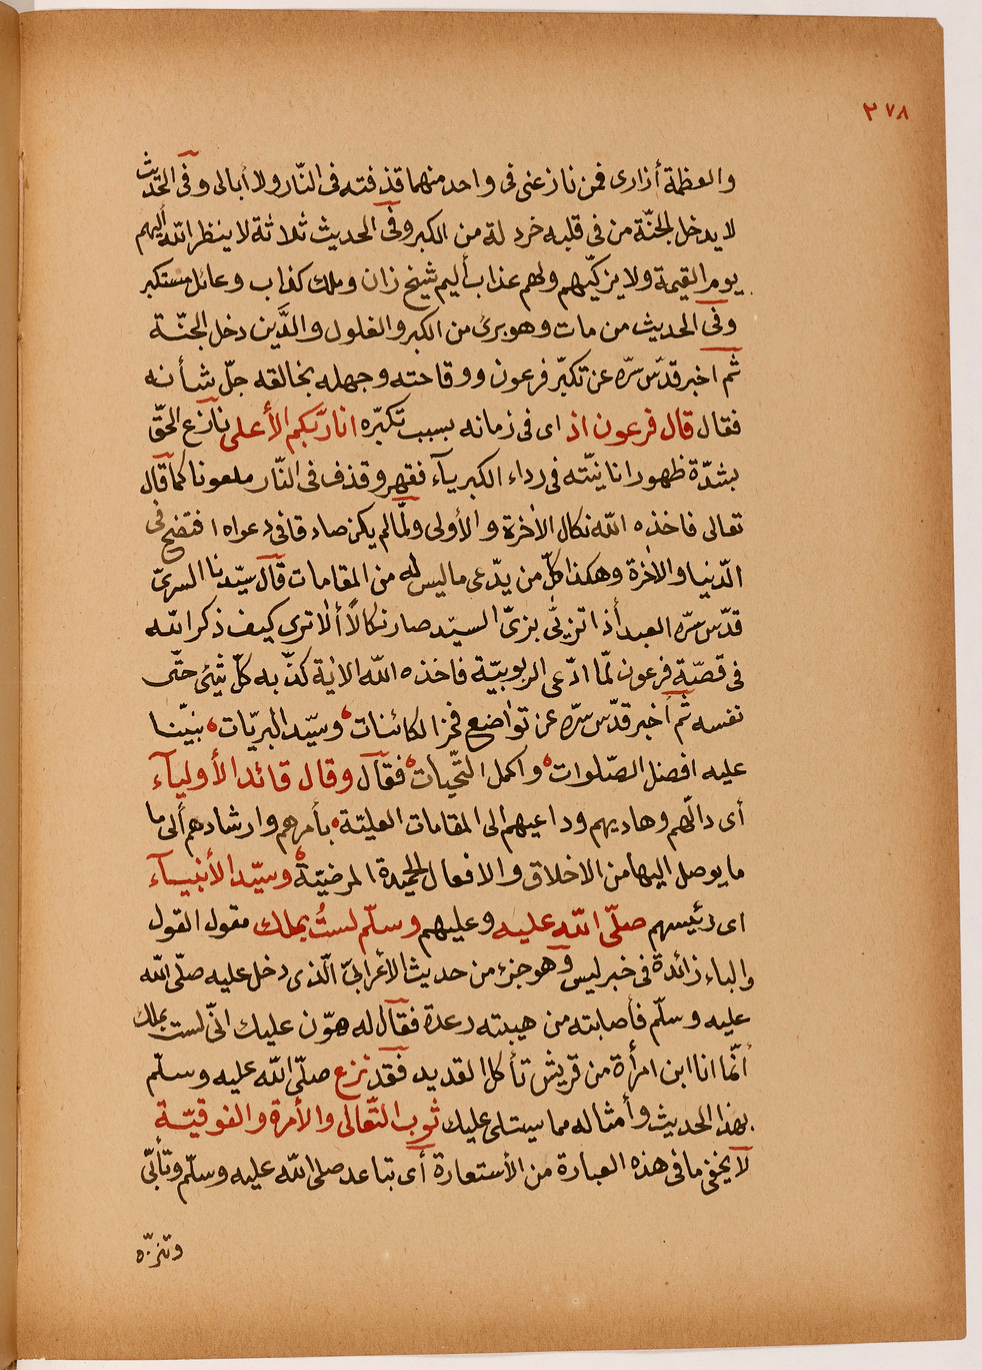 ٢٧٨
والعظمة أزارى فمن نازعنى فى واحد منهما قذفته فى النّار ولا أبالى وفى الحديث
لا يدخل الجنّة من فى قلبه خردلة من الكبر وفى الحديث ثلاثة لا ينظر اللّه أليهم
يوم القيمة ولا يزكّيهم ولهم عذاب أليم شيخ زان وملك كذاب وعائل مستكبر
وفى الحديث من مات وهو برئ من الكبر والغلول والدَّين دخل الجنّة
ثم اخبر قدّس سرّه عن تكبّر فرعون ووقاحته وجهله بخالقه جلّ شأنه
فقال قال فرعون اذ اى فى زمانه بسبب تكبّره انا ربّكم الأعلى نازع الحقّ
بشدّة ظهور انانيّته فى رداء الكبريآء فقهر وقذف فى النّار ملعونا كما قال
تعالى فاخذه اللّه نكال الأخرة والأولى ولمّا لم يكن صادقا فى دعواه افتضح فى
الدّنيا والأخرة وهكذا كلّ من يدّعى ما ليس له من المقامات قال سيّدنا السرىّ
قدّس سرّه العبد أذا تزيّى بزىّ السيّد صار نكالاً ألا ترى كيف ذكر اللّه
فى قصّة فرعون لمّا ادّعى الربوبيّة فاخذه اللّه الأية كذّبه كلّ شئ حتّى
نفسه ثم أخبر قدّس سرّه عن تواضع فخر الكائنات وسيّد البريّات نبيّنا
عليه افضل الصّلوات واكمل التّحيات فقال وقال قائد الأوليآء
أى دالّهم وهاديهم وداعيهم الى المقامات العليّة بأمرهم وارشادهم ألى ما
ما يوصل اليها من الاخلاق والافعال الحميدة المرضيّة وسيّد الأنبيآء
اى رئيسهم صلّى اللّه عليه وعليهم وسلّم لستُ بملك مقول القول
والباء زائدة فى خبر ليس وهو جزء من حديث الأعرابىّ الّذى دخل عليه صلّى اللّه
عليه وسلّم فأصابته من هيبته رعدة فقال له هوّن عليك انّى لست بملك
أنّما انا ابن امرأة من قريش تأكل القديد فقد نزع صلّى اللّه عليه وسلّم
بهذا الحديث وأمثاله مما سيتلى عليك ثوب التّعالى والأمرة والفوقيّة
لا يخفى ما فى هذه العبارة من الأستعارة أى تباعد صلى اللّه عليه وسلّم وتأبّى
وتنزّه